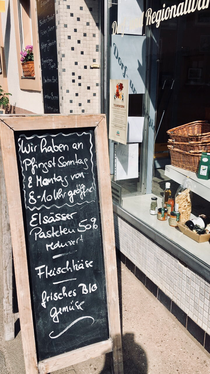 Regionalwar
Wir haben an
Pfingst Sonntag
& Montag von
8-10 Uhr geöffnet
Elsässer
Pasteten 5%
reduziert
Fleischkäse
frisches BIO
gemüse